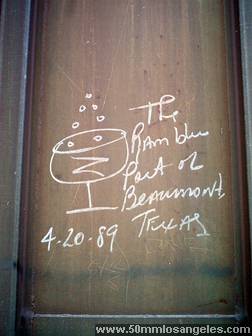 The
RAMbler
Port of
BEAUMONT,
TEXAS
4-20-89
www.50mmlosangeles.com